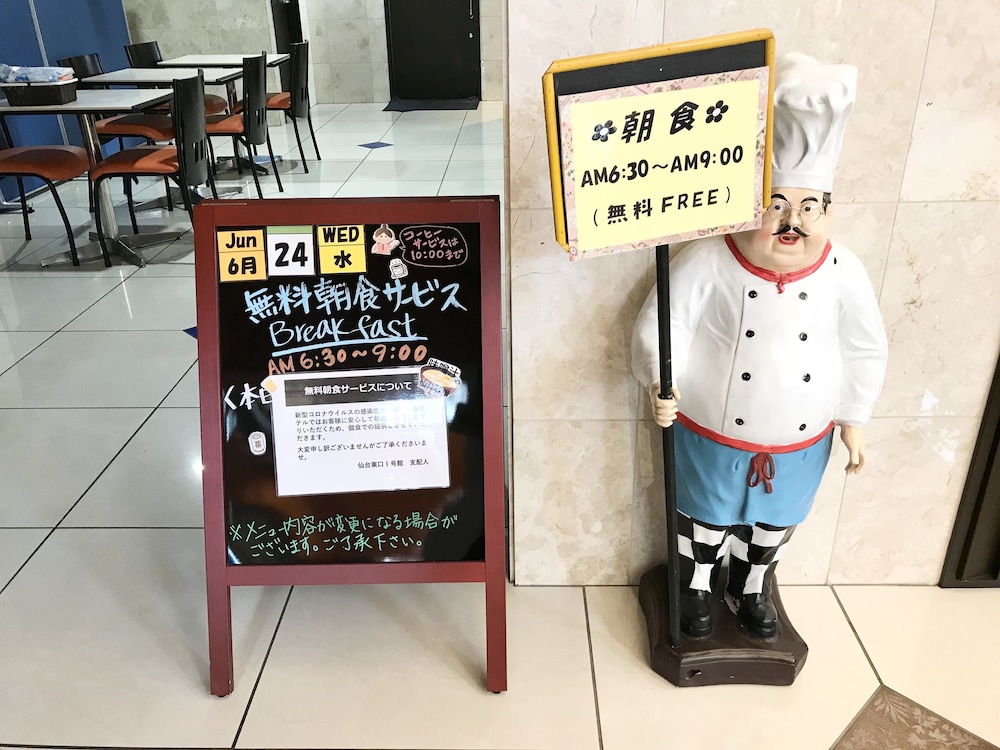 Jun
6月
24
WED
水
コーヒー
サービスは
10:00まで
無料朝食サービス
Breakfast
AM 6:30～9:00
く本日
無料朝食サービスについて
新型コロナウイルスの感染
テルではお客様に安心して
りいただくため、個食での提供
だきます。
大変申し訳ございませんがご了承くださいま
せ。
仙台東口1号館 支配人
※メニュー内容が変更になる場合が
ございます。ご了承下さい。
朝食
AM6:30～AM9:00
(無料FREE)